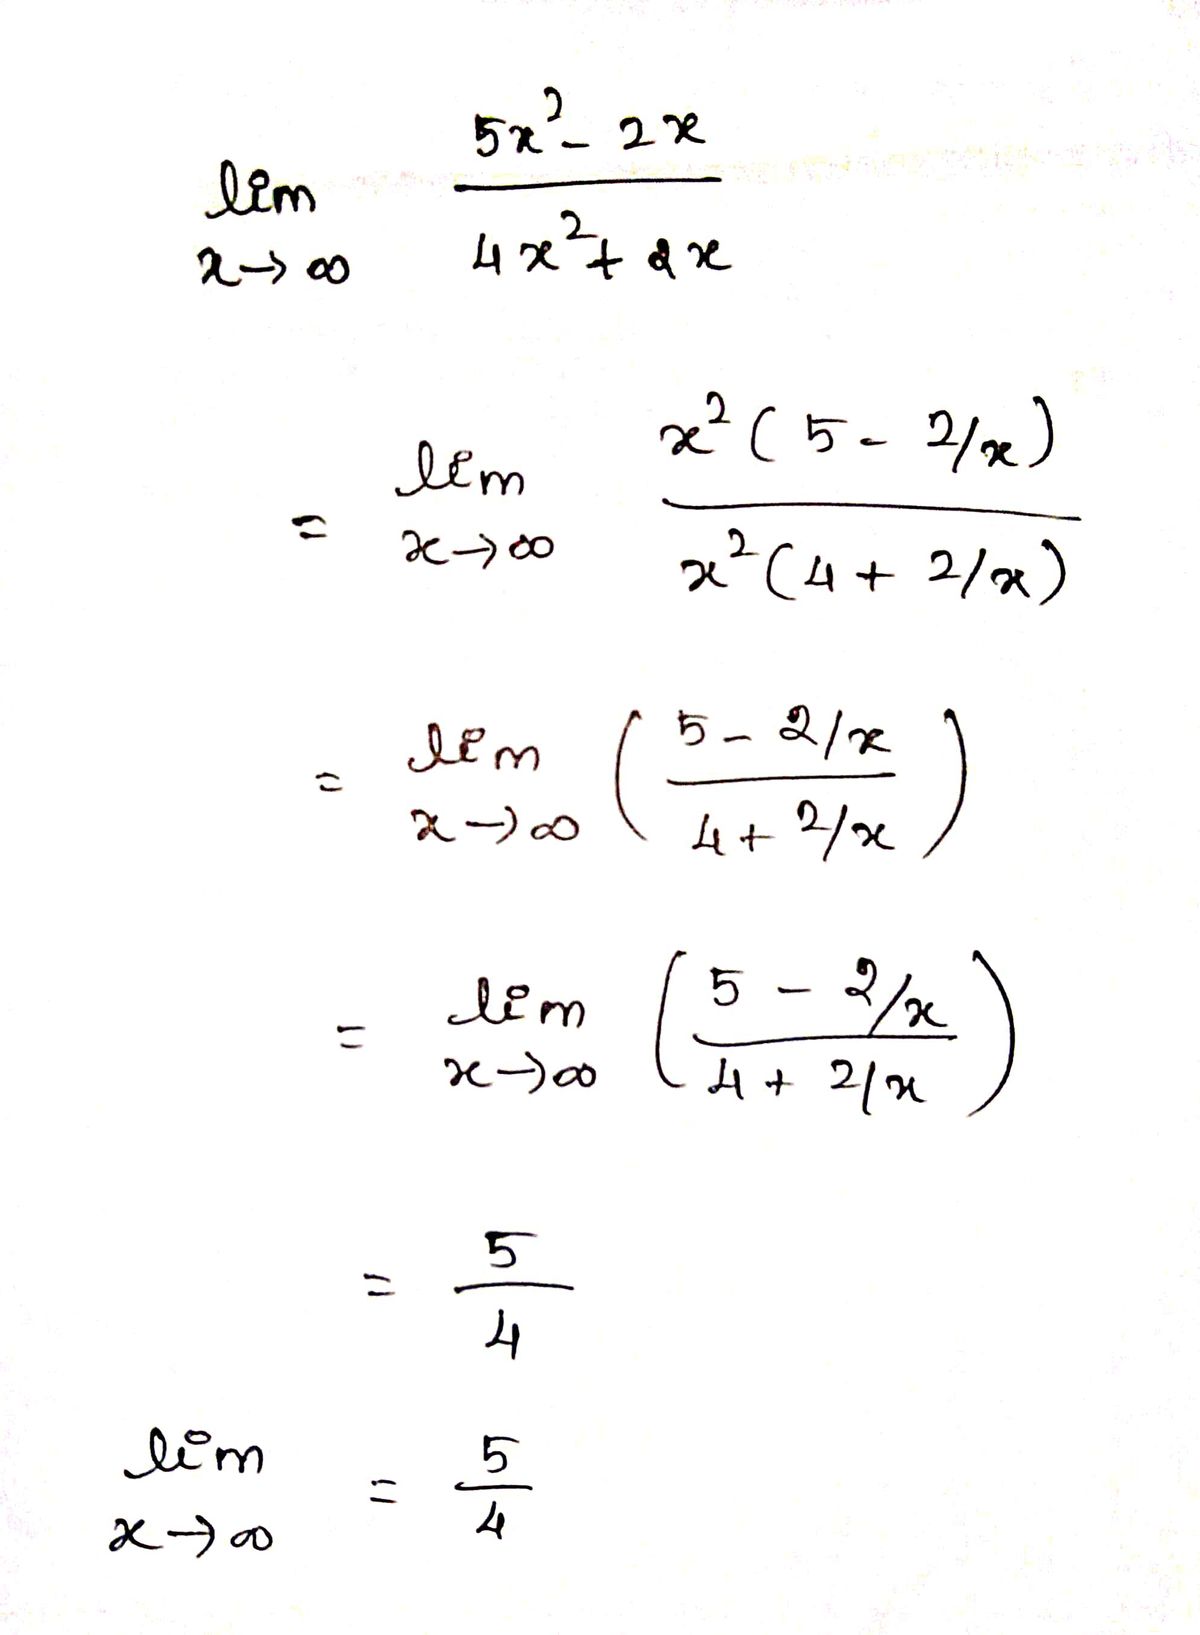 lim x→∞ (5x² - 2x)/(4x² + 2x)
= lim x→∞ x²(5 - 2/x)/x²(4 + 2/x)
= lim x→∞ ((5 - 2/x)/(4 + 2/x))
= lim x→∞ ((5 - 2/x)/(4 + 2/x))
= 5/4
lim x→∞ = 5/4